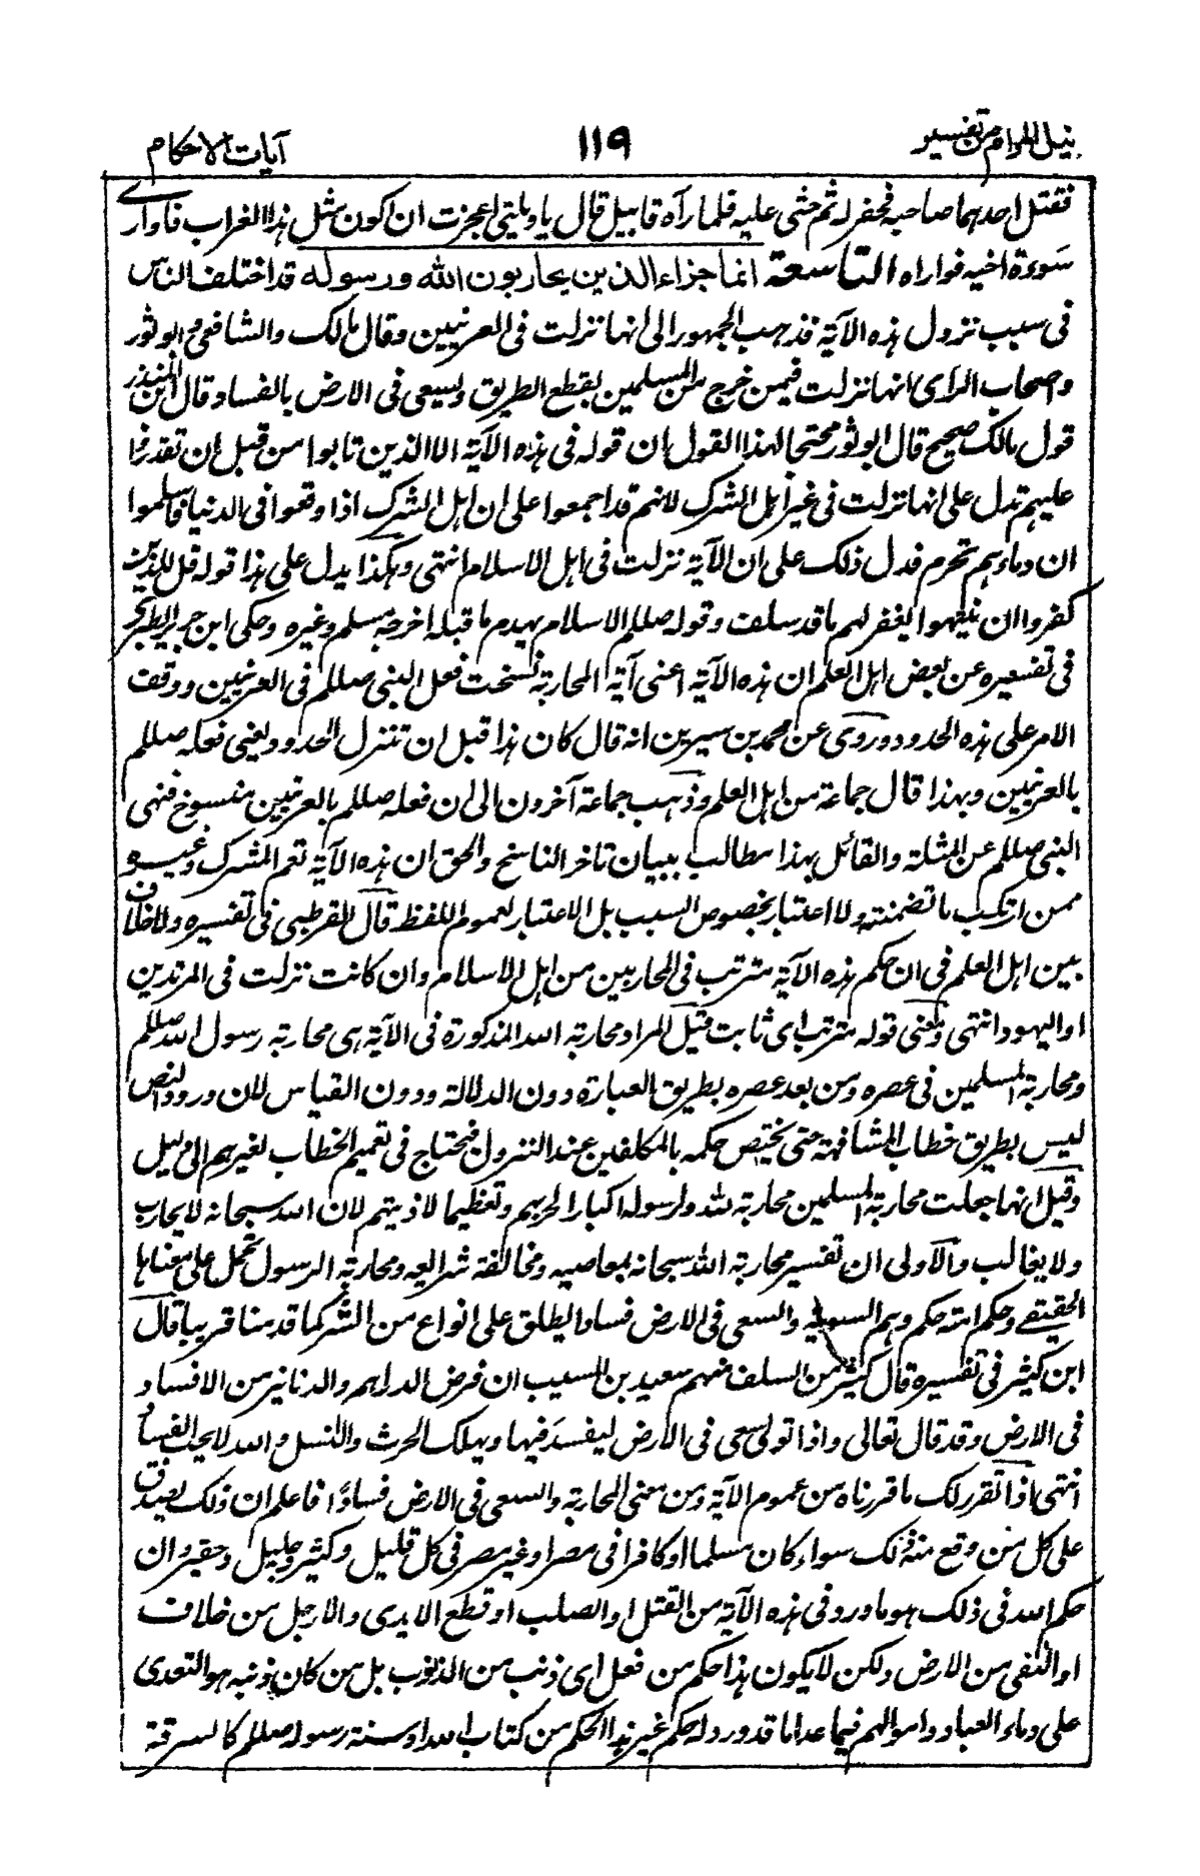 نيل المرام من تفسير
١١٩
آيات الاحكام
فقتل احدهما صاحبه فحفر له ثم حثى عليه فلما رآه قابيل قال ياويلتى اعجزت ان اكون مثل هذا الغراب فاوارے
سَوءة اخيه فواراه التاسعة انما جزاء الذين يحاربون الله ورسوله قد اختلف الناس
فى سبب نزول هذه الآية فذهب الجمهور الى انها نزلت فى العرنيين وقال مالك والشافعى وابو ثور
واصحاب الراى انها نزلت فيمن خرج من المسلمين يقطع الطريق ويسعى فى الارض بالفساد قال ابن المنذر
قول مالك صحيح قال ابو ثور محتجا لهذا القول ان قوله فى هذه الآية الا الذين تابوا من قبل ان تقدروا
عليهم تدل على انها نزلت فى غير اهل الشرك لانهم قد اجمعوا على ان اهل الشرك اذا وقعوا فى الدنيا فاسلموا
ان دماءهم تحرم فدل ذلك على ان الآية نزلت فى اهل الاسلام انتهى وهكذا يدل على هذا قوله قل للذين
كفروا ان ينتهوا يغفر لهم ما قد سلف وقوله صللم الاسلام يهدم ما قبله اخرجه مسلم وغيره وحكى ابن جرير الطبرى
فى تفسيره عن بعض اهل العلم ان هذه الآية اعنى آية المحاربة نسخت فعل النبى صللم فى العرنيين ووقف
الامر على هذه الحدود وروى عن محمد بن سيرين انه قال كان هذا قبل ان تنزل الحدود يعنى فعله صللم
بالعرنيين وبهذا قال جماعة من اهل العلم وذهب جماعة آخرون الى ان فعله صللم بالعرنيين منسوخ فنهى
النبى صللم عن المثلة والقائل بهذا مطالب ببيان تاخر الناسخ والحق ان هذه الآية تعم المشرك وغيره
ممن ارتكب ما تضمنته ولا اعتبار بخصوص السبب بل الاعتبار لعموم اللفظ قال القرطبى فى تفسيره ولا خلاف
بين اهل العلم فى ان حكم هذه الآية مترتب فى المحاربين من اهل الاسلام وان كانت نزلت فى المرتدين
او اليهود انتهى ومعنى قوله مترتب اى ثابت قيل المراد محاربة الله المذكورة فى الآية هى محاربة رسول الله صللم
ومحاربة المسلمين فى عصره ومن بعد عصره بطريق العبارة دون الدلالة ودون القياس لان ورود النص
ليس بطريق خطاب المشافهة حتى يختص حكمه بالمكلفين عند النزول فيحتاج فى تعميم الخطاب لغيرهم الى دليل
وقيل انها جعلت محاربة المسلمين محاربة لله ولرسوله اكبارا لحربهم وتعظيما لاذيتهم لان الله سبحانه لا يحارب
ولا يغالب والاولى ان تفسير محاربة الله سبحانه بمعاصيه ومخالفة شرايعه ومحاربة الرسول تحمل على معناها
الحقيقے وحكم امته حكمه وهم اسوته والسعى فى الارض فسادا يطلق على انواع من الشر كما قدمنا قريبا قال
ابن كثير فى تفسيره قال كثير من السلف منهم سعيد بن المسيب ان قرض الدراهم والدنانير من الافساد
فى الارض وقد قال تعالى واذا تولى سعى فى الارض ليفسدَ فيها ويهلك الحرث والنسل والله لا يحب الفساد
انتهى اذا تقرر لك ما قررناه من عموم الآية ومن معنى المحاربة والسعى فى الارض فسادًا فاعلم ان ذلك يصدق
على كل من وقع منه ذلك سواء كان مسلما او كافرا فى مصر او غير مصر فى كل قليل وكثير وجليل وحقير وان
حكم الله فى ذلك هو ما ورد فى هذه الآية من القتل او الصلب او قطع الايدى والارجل من خلاف
او النفى من الارض ولكن لا يكون هذا حكم من فعل اى ذنب من الذنوب بل من كان ذنبه هو التعدى
على دماء العباد واموالهم فيما عدا ما قد ورد له حكم غير هذا الحكم من كتاب الله او سنة رسوله صللم كالسرقة